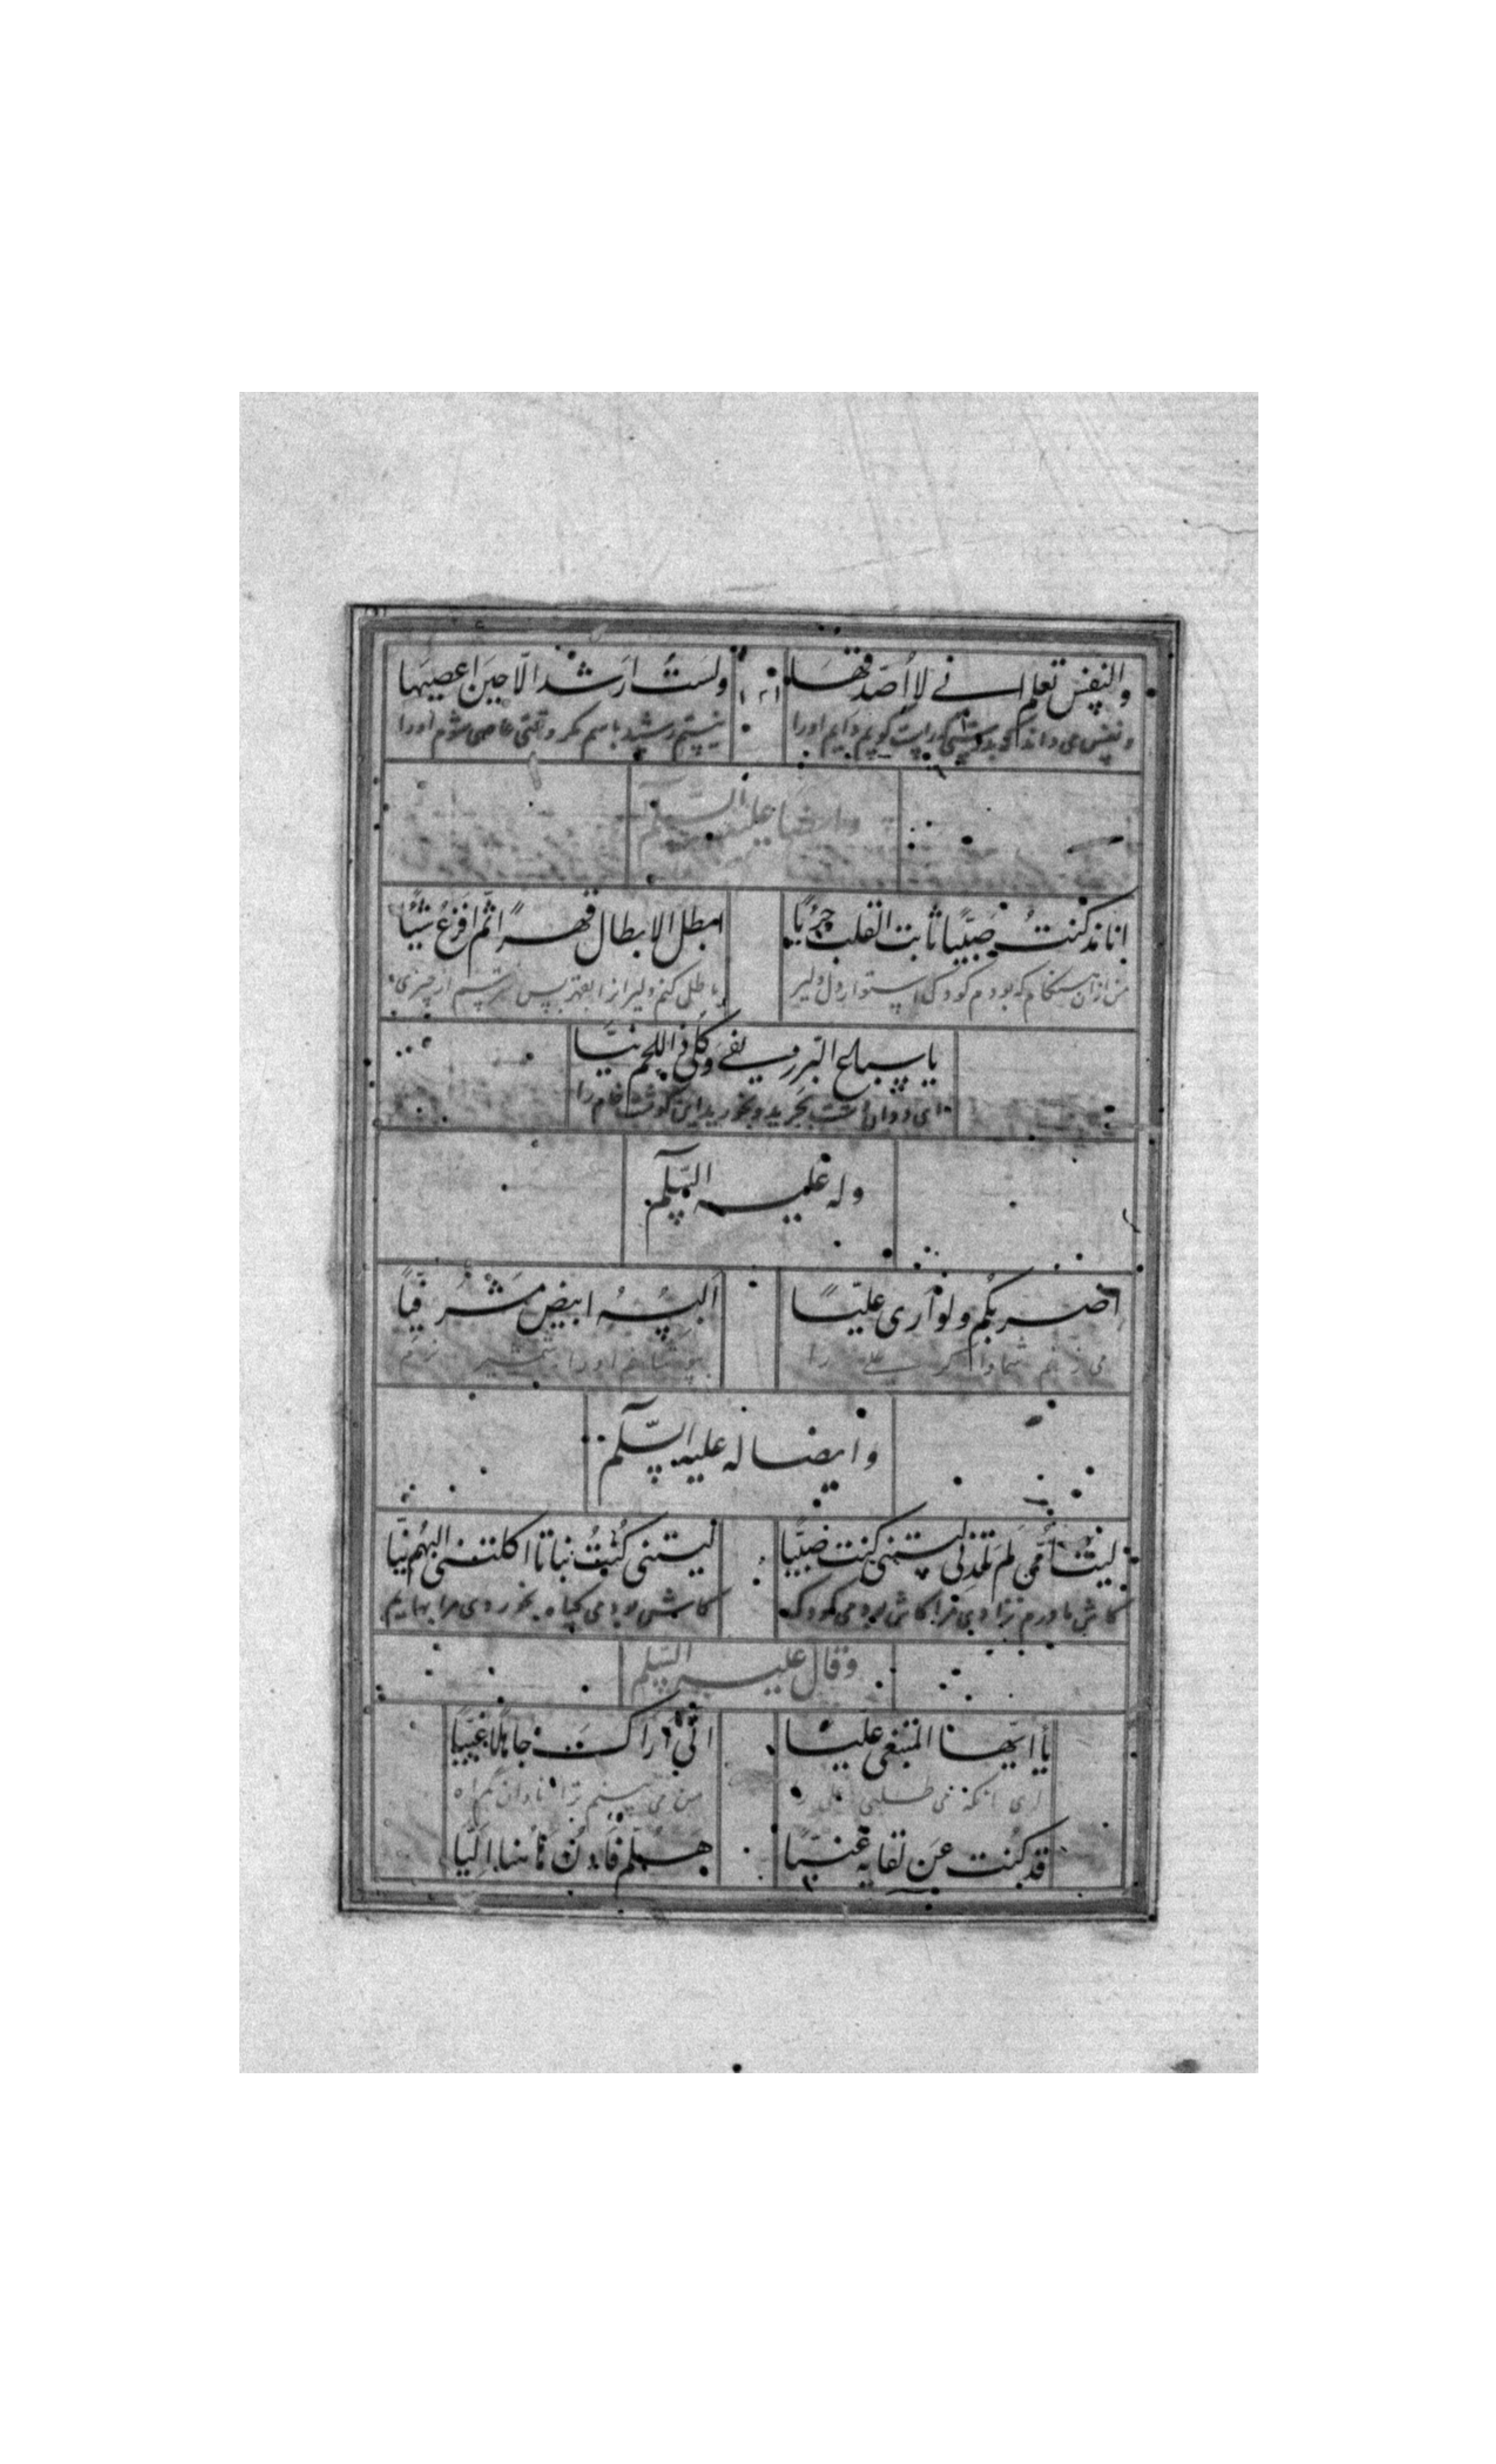 والنفس تعلم انی لا اصدقها ولست ارشد الا حین اعصیها
و نفس می داند که بدرستی که راست گویم دایم او را نیستم رشید باسم مگر وقتی عاصی شوم او را
وایضا علیه السلم
انا مذ کنت صبیا ثابت القلب جریا ابطل الابطال قهرا ثم لا افزع شیئا
من از آن هنگام که بودم کودک استوار دل ودلیر باطل کنم دلیرانرا بقهر پس نترسم از چیزی
یا سباع البر ریفی وکلی اللحم نیا
ای ددان دشت بچرید و بخورید این گوشت خام را
وله علیه السلم
اضربکم ولو اری علیا البسه ابیض مشرفیا
می زنم شما را اگر علی را بپوشانم او را شمشیر
وایضا له علیه السلم
لیت امی لم تلدنی لیتنی کنت صبیا لیتنی کنت نباتا اکلتنی البهم نیا
کاش مادرم نزادی مرا کاش بودمی کودک کاش بودمی گیاه بخوردی مرا بهایم
وقال علیه السلم
یا ایهذا المبتغی علیا انی اراک جاهلا غبیا
ای آنکه می طلبی علی را من می بینم ترا نادان گمراه
قد کنت عن لقایه غنیا هلم فادن هاهنا الیا